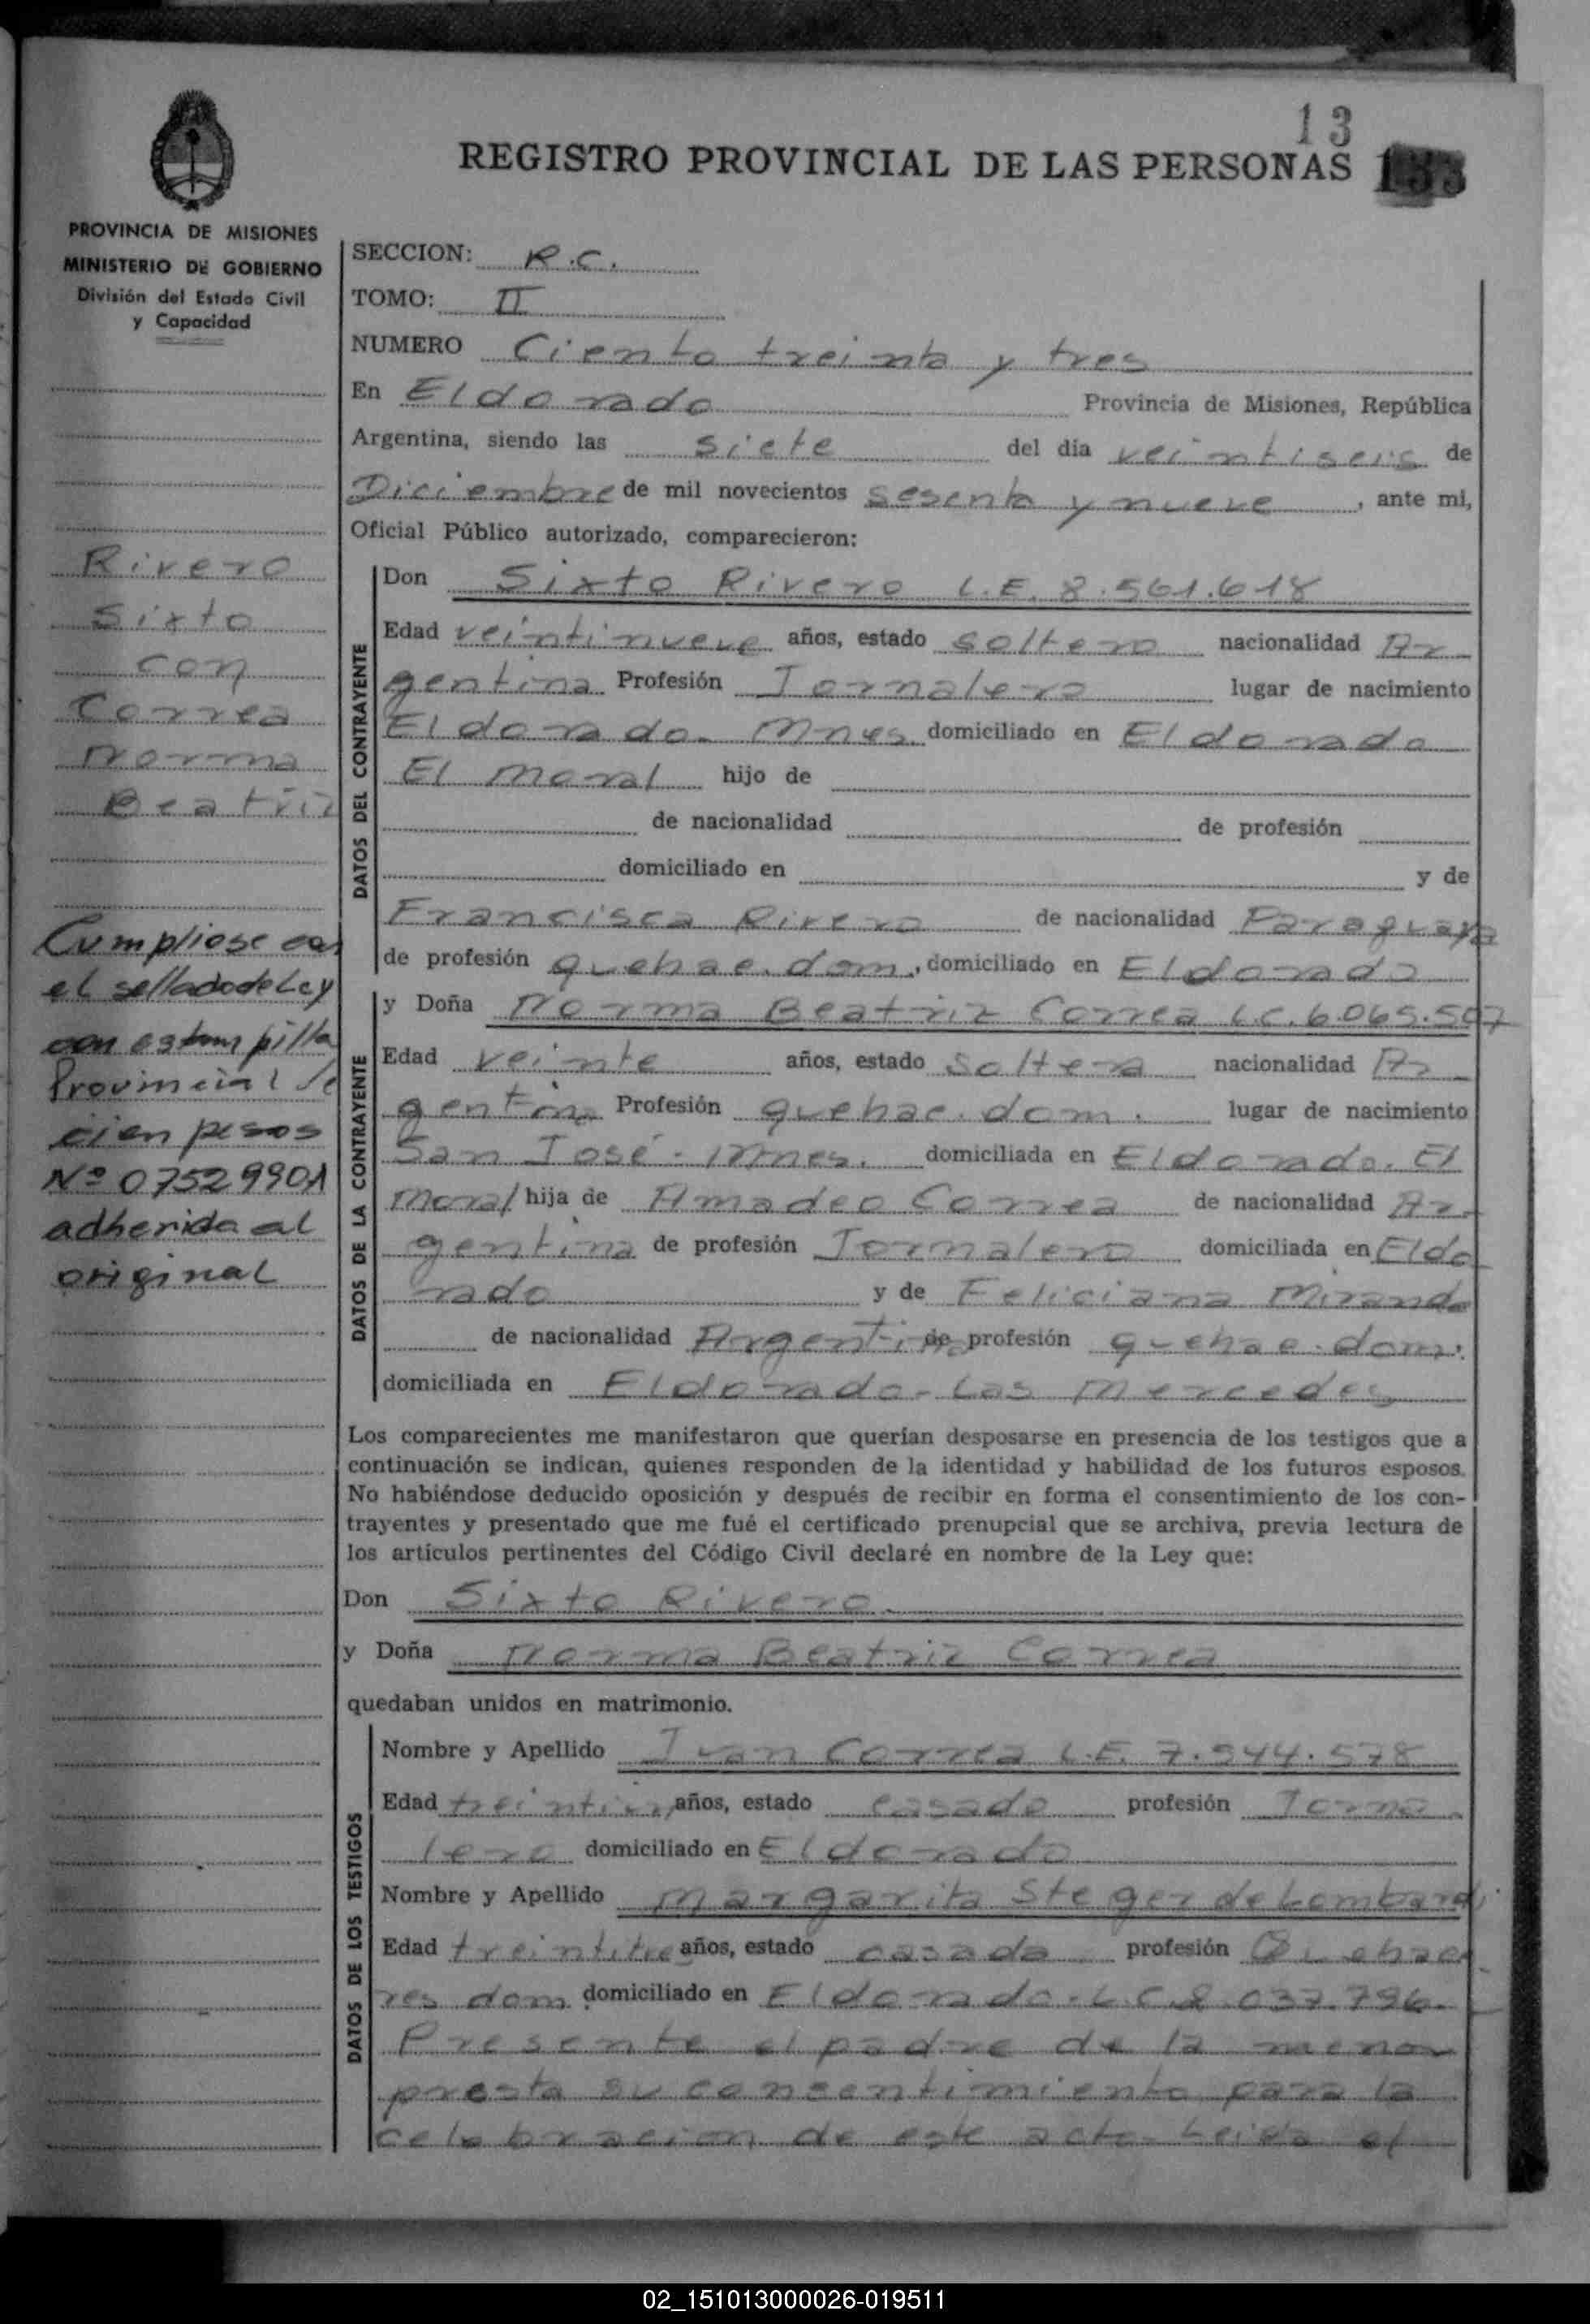 13
REGISTRO PROVINCIAL DE LAS PERSONAS 133
PROVINCIA DE MISIONES
MINISTERIO DE GOBIERNO
División del Estado Civil
y Capacidad
SECCION: R.C.
TOMO: II
NUMERO Ciento treinta y tres
En Eldorado Provincia de Misiones, República
Argentina, siendo las siete del dia veintiseis de
Diciembre de mil novecientos sesenta y nueve, ante mi,
Oficial Público autorizado, comparecieron:
Rivero
Sixto
con
Correa
Norma
Beatriz
Cumpliose con
el sellado de Ley
con estampilla
Provincial de
cien pesos
Nº 07529901
adherida al
original
DATOS DEL CONTRAYENTE
Don Sixto Rivero L.E. 8.561.618
Edad veintinueve años, estado soltero nacionalidad Ar
gentina Profesión Jornalero lugar de nacimiento
Eldorado- Mnes domiciliado en Eldorado
El Moral hijo de
de nacionalidad de profesión
domiciliado en y de
Francisca Rivero de nacionalidad Paraguaya
de profesión quehac. dom., domiciliado en Eldorado
DATOS DE LA CONTRAYENTE
y Doña Norma Beatriz Correa L.C. 6.065.507
Edad veinte años, estado soltera nacionalidad Ar
gentina Profesión quehac. dom. lugar de nacimiento
San José - Mnes. domiciliada en Eldorado. El
Moral hija de Amadeo Correa de nacionalidad Ar-
gentina de profesión Jornalero domiciliada en Eldo
rado y de Feliciana Miranda
de nacionalidad Argentina de profesión quehac. dom.
domiciliada en Eldorado- Las Mercedes
Los comparecientes me manifestaron que querían desposarse en presencia de los testigos que a
continuación se indican, quienes responden de la identidad y habilidad de los futuros esposos.
No habiéndose deducido oposición y después de recibir en forma el consentimiento de los con-
trayentes y presentado que me fué el certificado prenupcial que se archiva, previa lectura de
los artículos pertinentes del Código Civil declaré en nombre de la Ley que:
Don Sixto Rivero
y Doña Norma Beatriz Correa
quedaban unidos en matrimonio.
DATOS DE LOS TESTIGOS
Nombre y Apellido Juan Correa L.E. 7.544.578
Edad años, estado casado profesión Jorna
lero domiciliado en Eldorado
Nombre y Apellido Margarita Steger de Lombardi
Edad treintitres años, estado casada profesión Quehace
res dom domiciliado en Eldorado- L.C. 2.037.796-
Presente el padre de la menor
presta su consentimiento para la
celebracion de este acto- Leida el
02_151013000026-019511